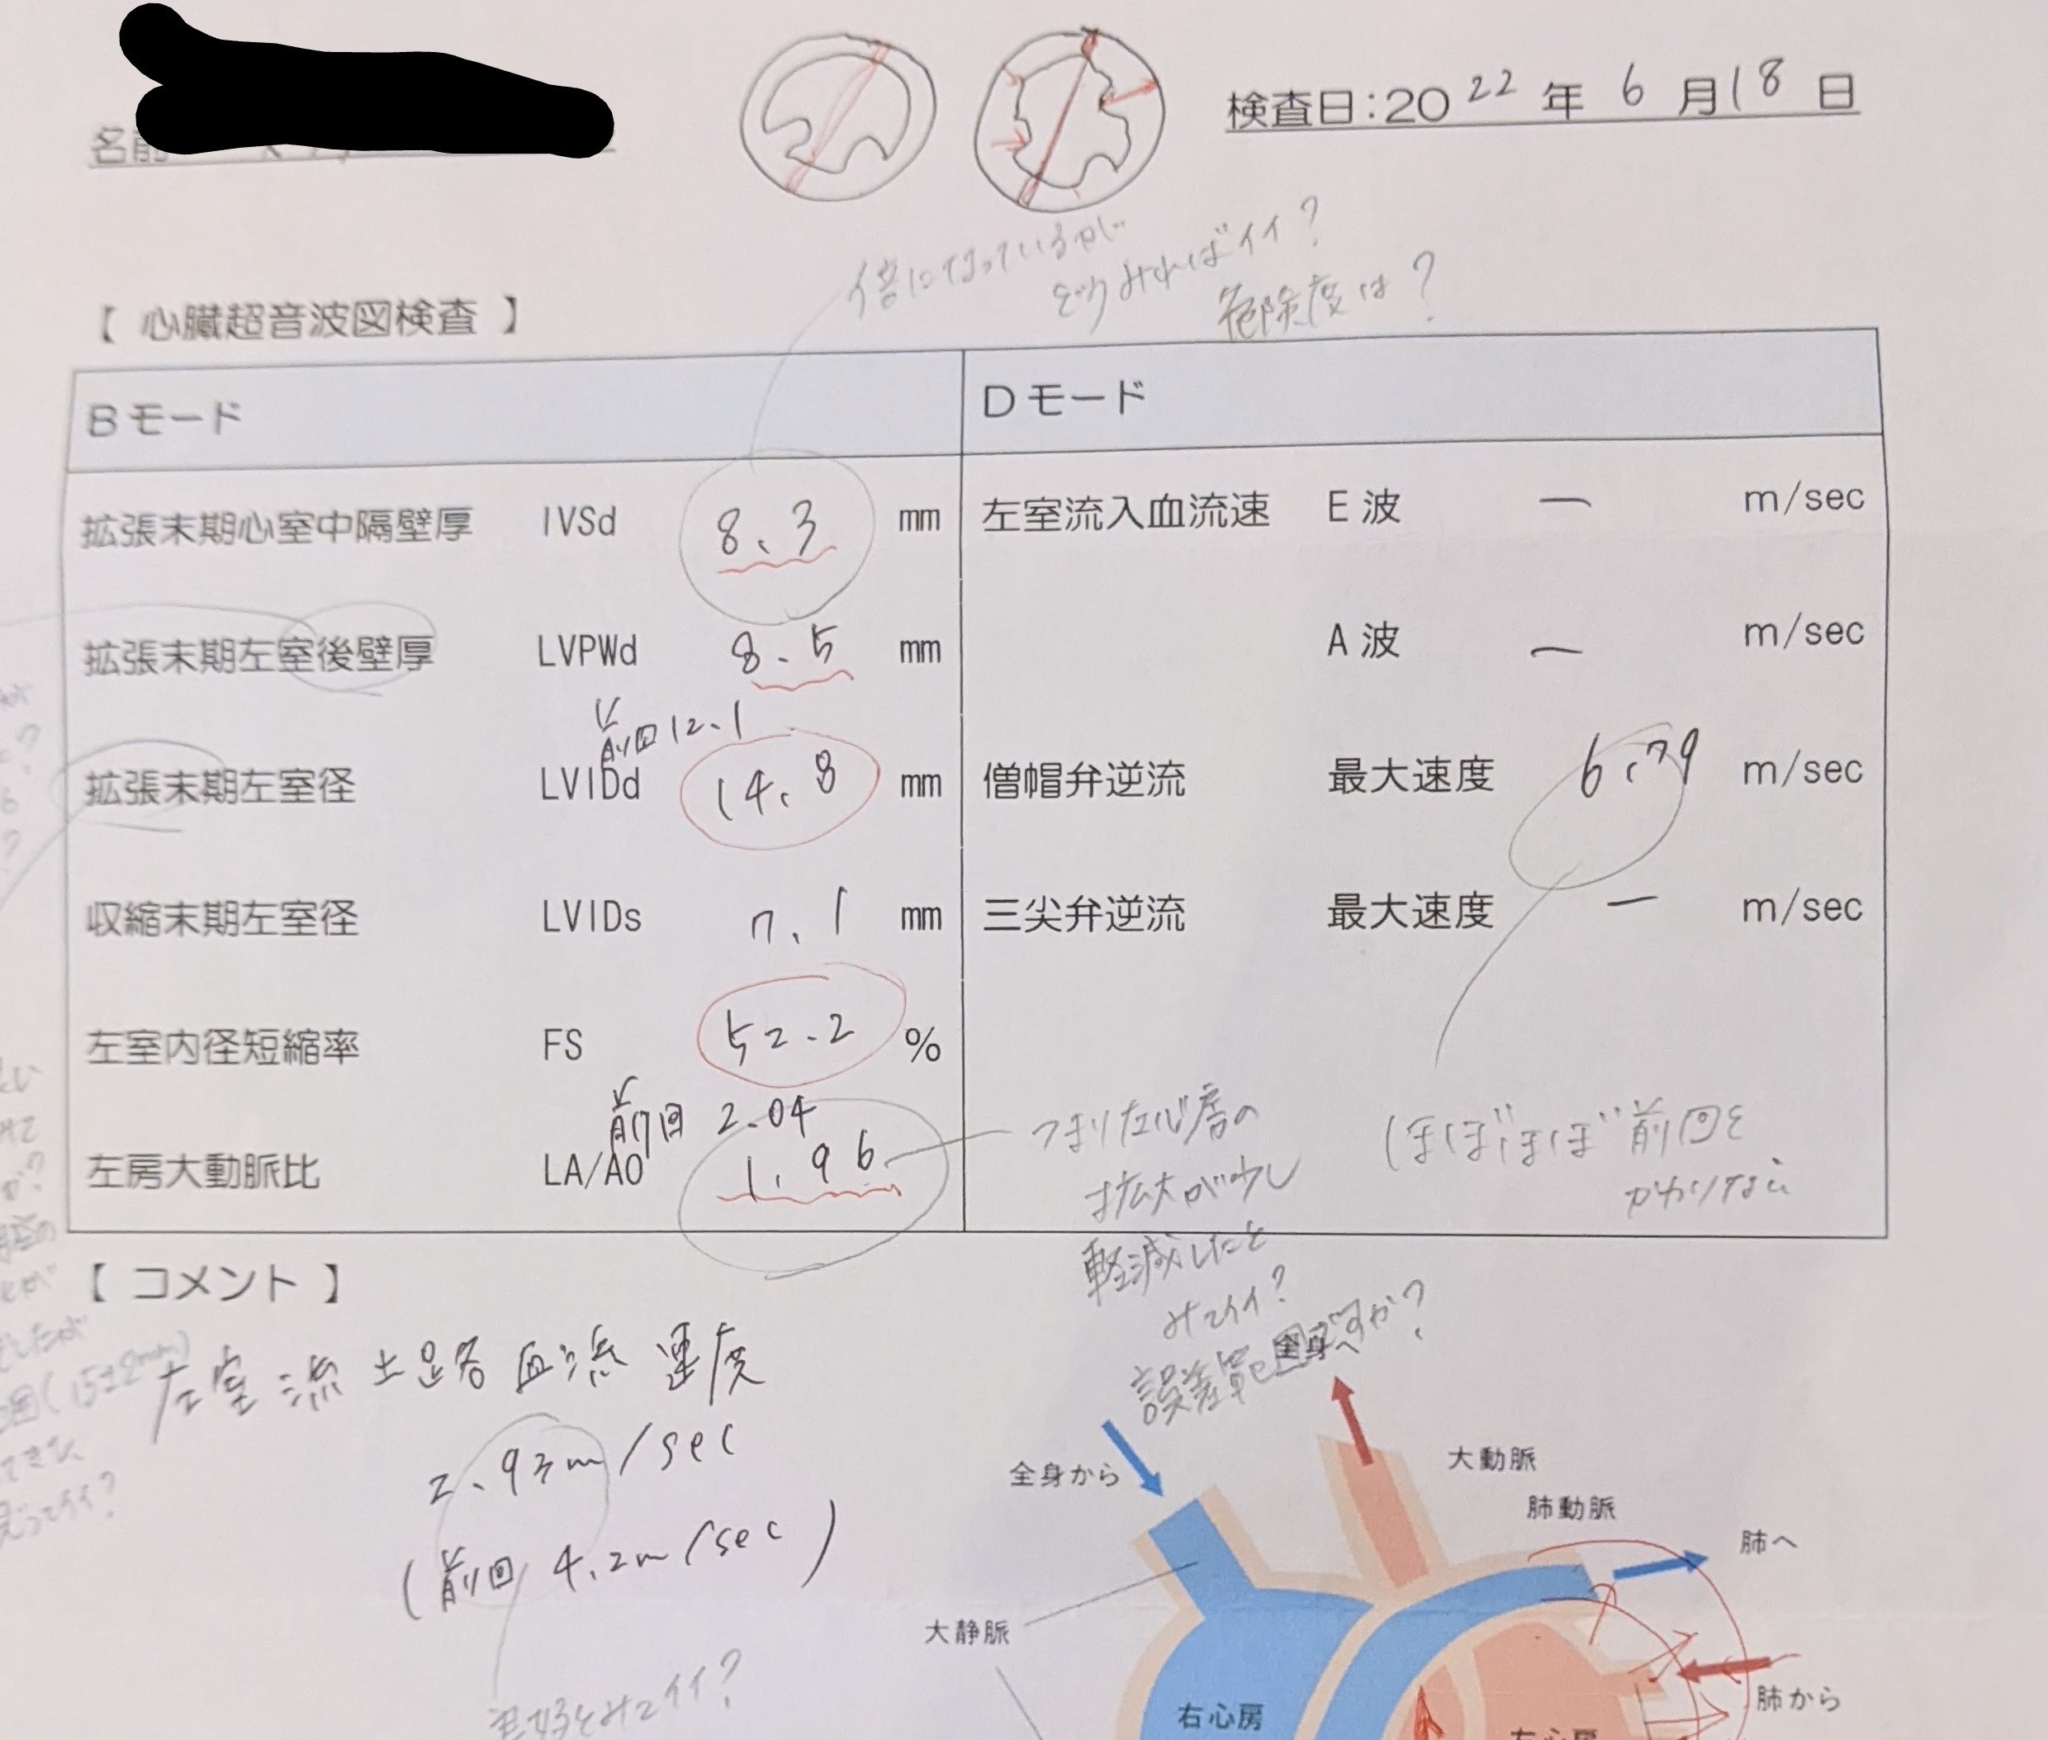 名前
検査日:2022年 6月18日
倍になっているが
どうみればイイ?
危険度は?
【 心臓超音波図検査 】
Bモード
Dモード
拡張末期心室中隔壁厚 IVSd 8.3 mm
左室流入血流速 E波 ー m/sec
拡張末期左室後壁厚 LVPWd 8.5 mm
A波 ー m/sec
前回12.1
拡張末期左室径 LVIDd 14.8 mm
僧帽弁逆流 最大速度 6.79 m/sec
収縮末期左室径 LVIDs 7.1 mm
三尖弁逆流 最大速度 ー m/sec
左室内径短縮率 FS 52.2 %
前回 2.04
左房大動脈比 LA/AO 1.96
つまり左心房の
拡大が少し
軽減したと
みてイイ?
誤差範囲ですか?
ほぼほぼ前回と
かわりない
【 コメント 】
左室流出路血流速度
2.93m/sec
(前回 4.2m/sec)
みてイイ?
(15±2mm)
全身へ
全身から
大動脈
肺動脈
肺へ
大静脈
肺から
右心房
左心房